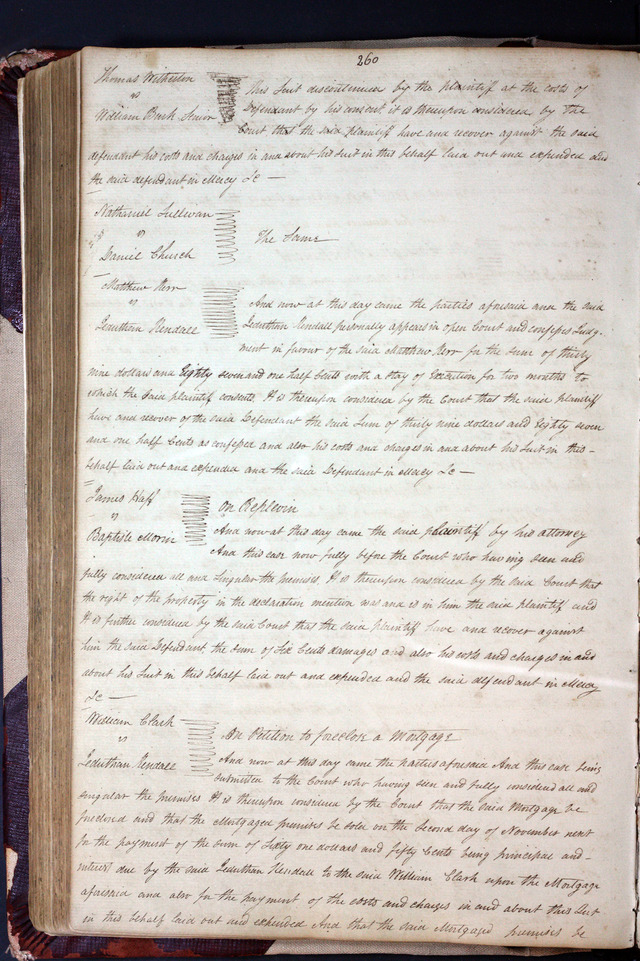 260
Thomas Witherton
vs
William Burk Senior
This Suit discontinued by the plaintiff at the costs of
Defendant by his consent it is thereupon considered by the
Court that the said plaintiff have and recover against the said
defendant his costs and charges in and about his Suit in this behalf laid out and expended and
the said defendant in Mercy &c —
Nathaniel Sullivan
vs
Daniel Church
The Same
Matthew Kerr
vs
Jeduthan Kendall
And now at this day came the parties aforesaid and the said
Jeduthan Kendall personally appears in open Court and confesses Judg-
ment in favour of the said Matthew Kerr for the Sum of thirty
nine dollars and Eighty seven and one half Cents with a stay of Execution for two months to
which the said plaintiff consents. It is thereupon considered by the Court that the said plaintiff
have and recover of the said Defendant the said Sum of thirty nine dollars and Eighty seven
and one half Cents as confessed and also his costs and charges in and about his Suit in this
behalf laid out and expended and the said Defendant in Mercy &c —
James Haff
vs
Baptiste Morin
On Replevin
And now at this day came the said plaintiff by his attorney
And this case now fully before the Court who having seen and
fully considered all and Singular the premises. It is thereupon considered by the said Court that
the right of the property in the declaration mention was and is in him the said plaintiff and
It is further considered by the said Court that the said plaintiff have and recover against
him the said Defendant the Sum of Six Cents damages and also his costs and charges in and
about his Suit in this behalf laid out and expended and the said defendant in Mercy
&c —
William Clark
vs
Jeduthan Kendall
On Petition to foreclose a Mortgage
And now at this day came the parties aforesaid And this case being
submitted to the Court who having seen and fully considered all and
singular the premises It is thereupon considered by the Court that the said Mortgage be
foreclosed and that the Mortgaged premises be sold on the Second day of November next
for the payment of the sum of Sixty one dollars and fifty Cents being principal and
interest due by the said Jeduthan Kendall to the said William Clark upon the Mortgage
aforesaid and also for the payment of the costs and charges in and about this Suit
in this behalf laid out and expended And that the said Mortgaged premises be